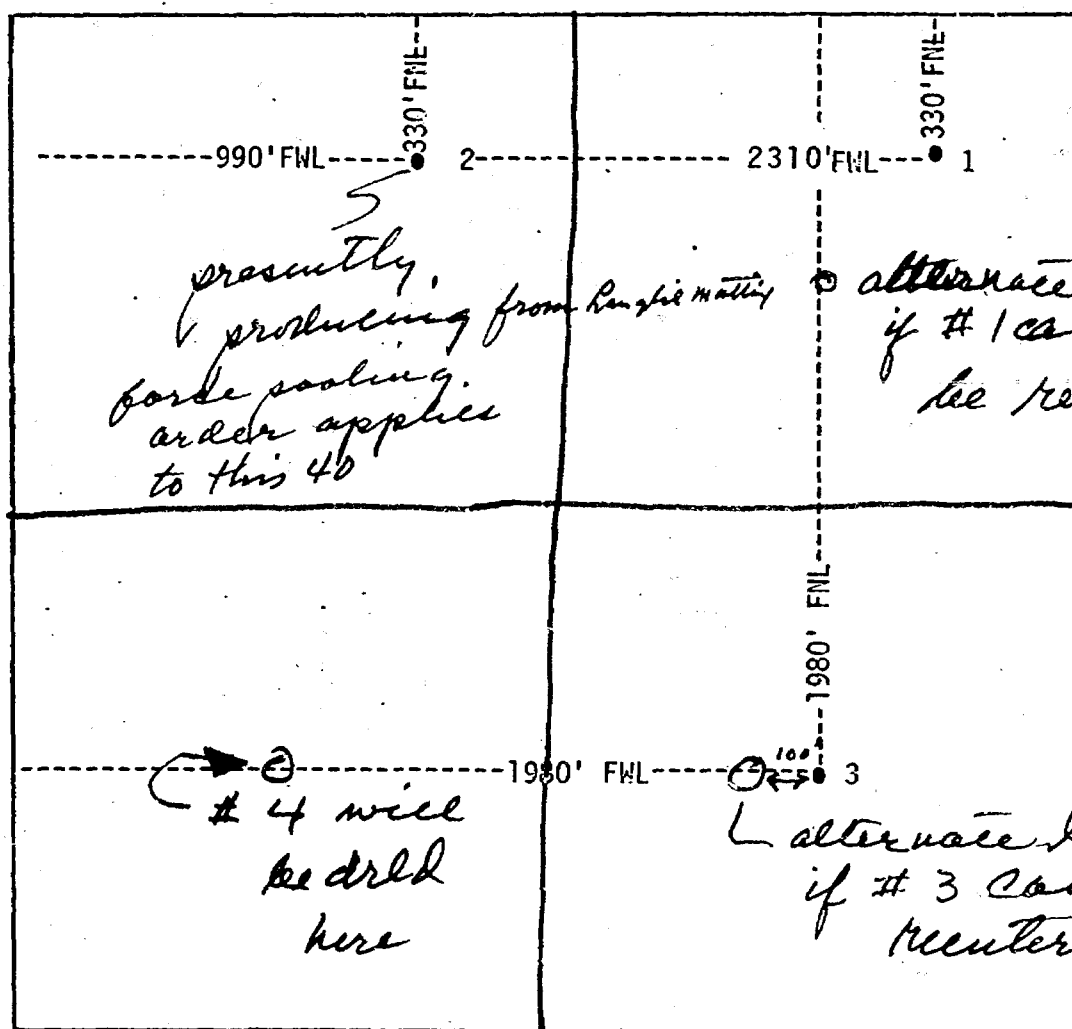 330' FNL
330' FNL
990' FWL
2
2310' FWL
1
presently
producing from Langlie Mattix
force pooling
order applies
to this 40
alternate
if # 1 ca
be re
1980' FNL
1980' FWL
100'
3
# 4 will
be drld
here
alternate
if # 3 can
reenter